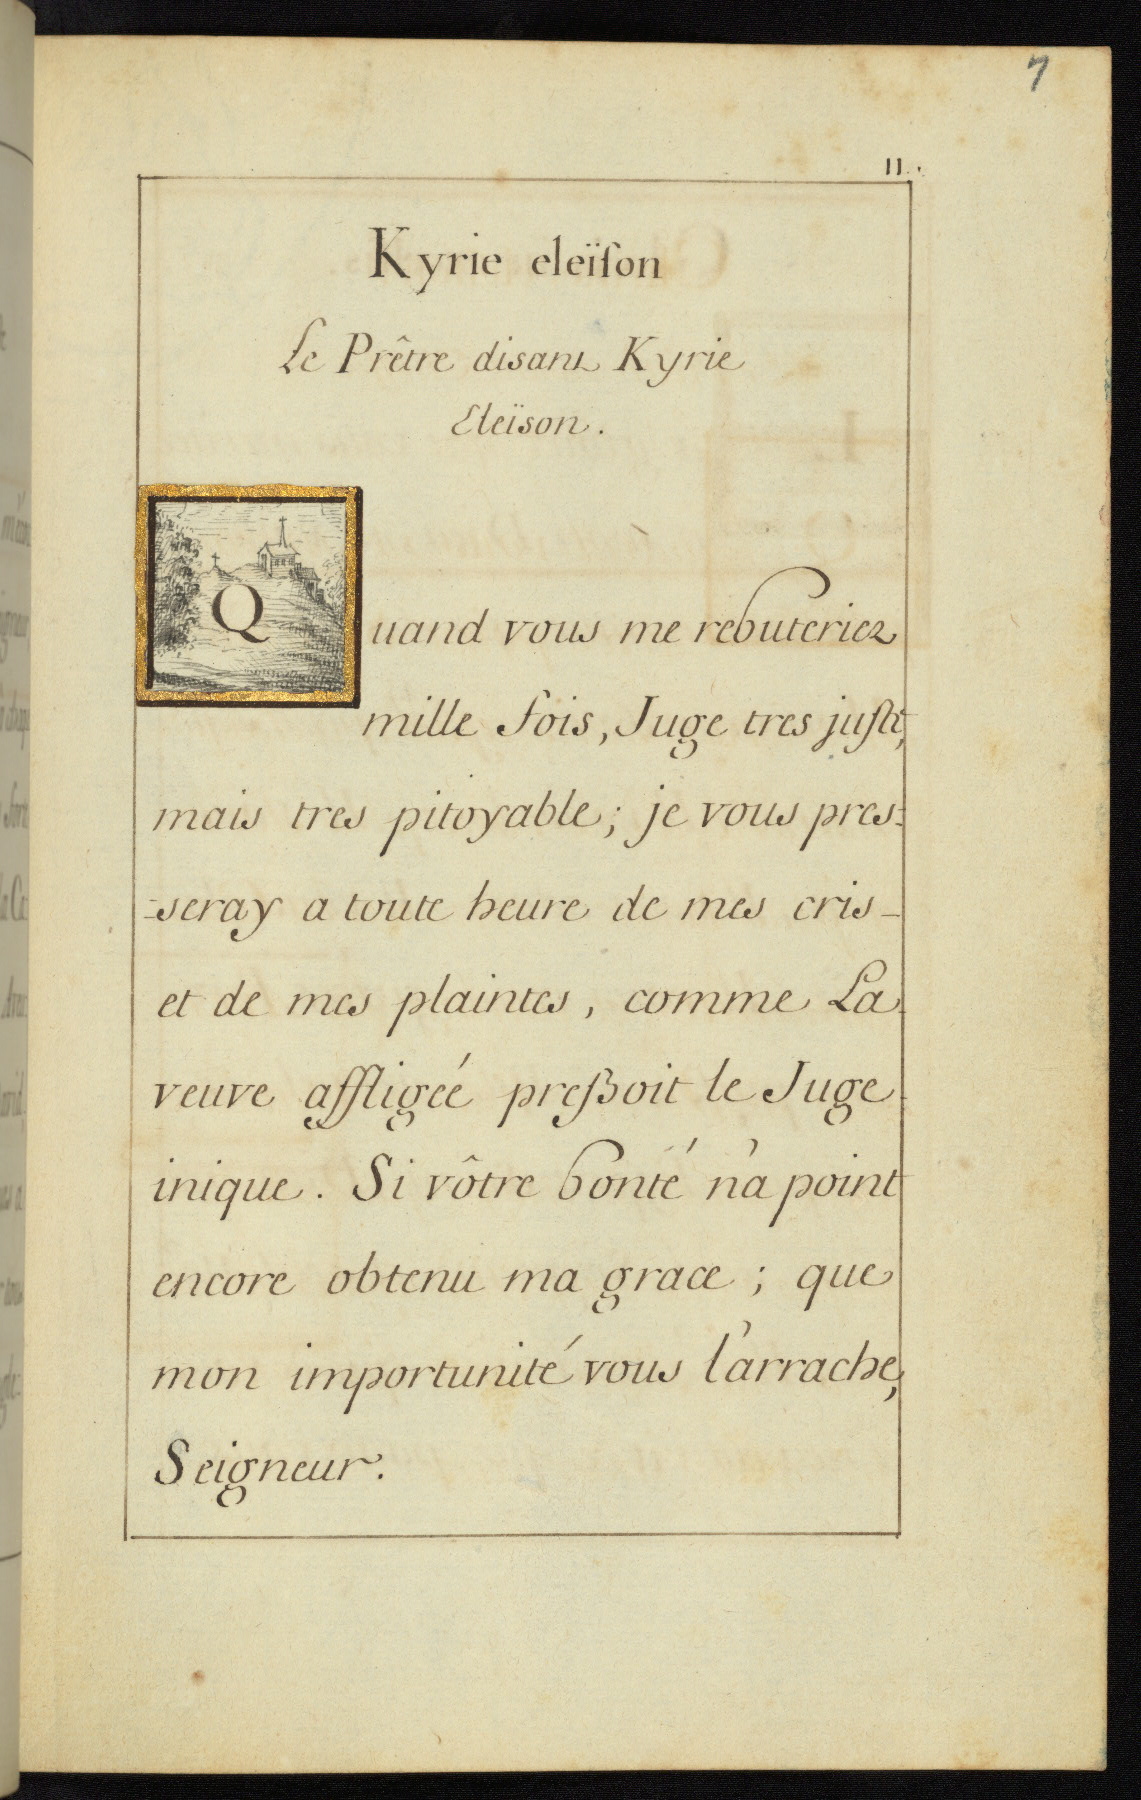 7
11.
Kyrie eleïſon
Le Prêtre disant Kyrie
Eleïson.
Quand vous me rebuteriez
mille fois, Juge tres juſte,
mais tres pitoyable; je vous pres-
-seray a toute heure de mes cris
et de mes plaintes, comme La
veuve affligeé preſsoit le Juge
inique. Si vôtre bonté n'a point
encore obtenu ma grace; que
mon importunité vous l'arrache,
Seigneur.